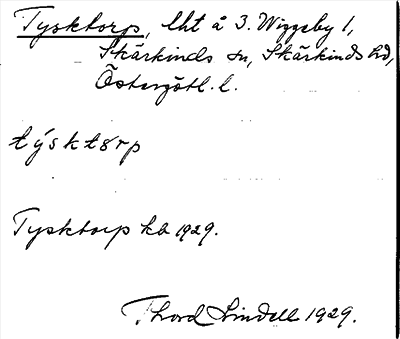 Tysktorp, lht å 3. Wiggeby 1,
Skärkinds sn, Skärkinds hd,
Östergötl. l.
týsktɵrp
Tysktorp kb 1929.
Thord Lindell 1929.